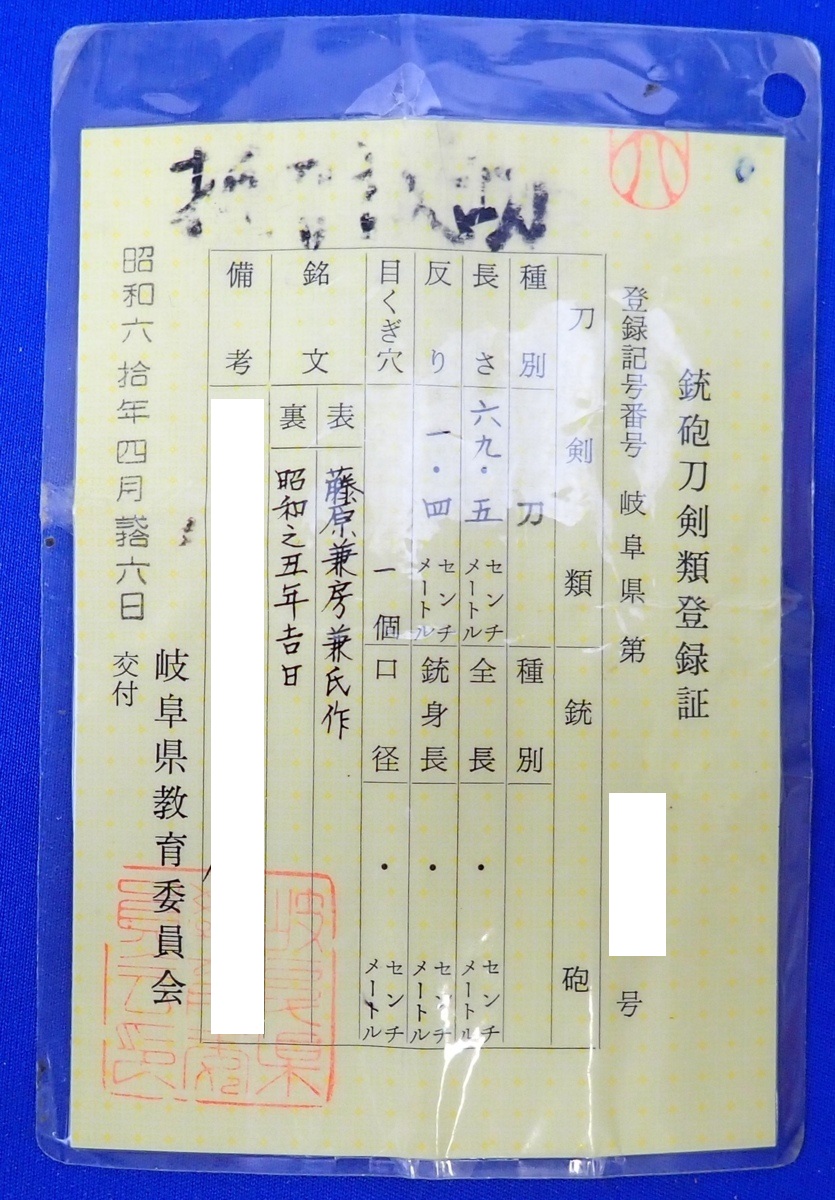 銃砲刀剣類登録証
登録記号番号 岐阜県第 号
刀剣類 銃砲
種別 刀 種別
長さ 六九・五 センチメートル 全長 ・ センチメートル
反り 一・四 センチメートル 銃身長 ・ センチメートル
目くぎ穴 一個 口径 ・ センチメートル
銘文 表 藤原兼房兼氏作
裏 昭和之丑年吉日
備考
岐阜県教育委員会
昭和六拾年四月 六日 交付